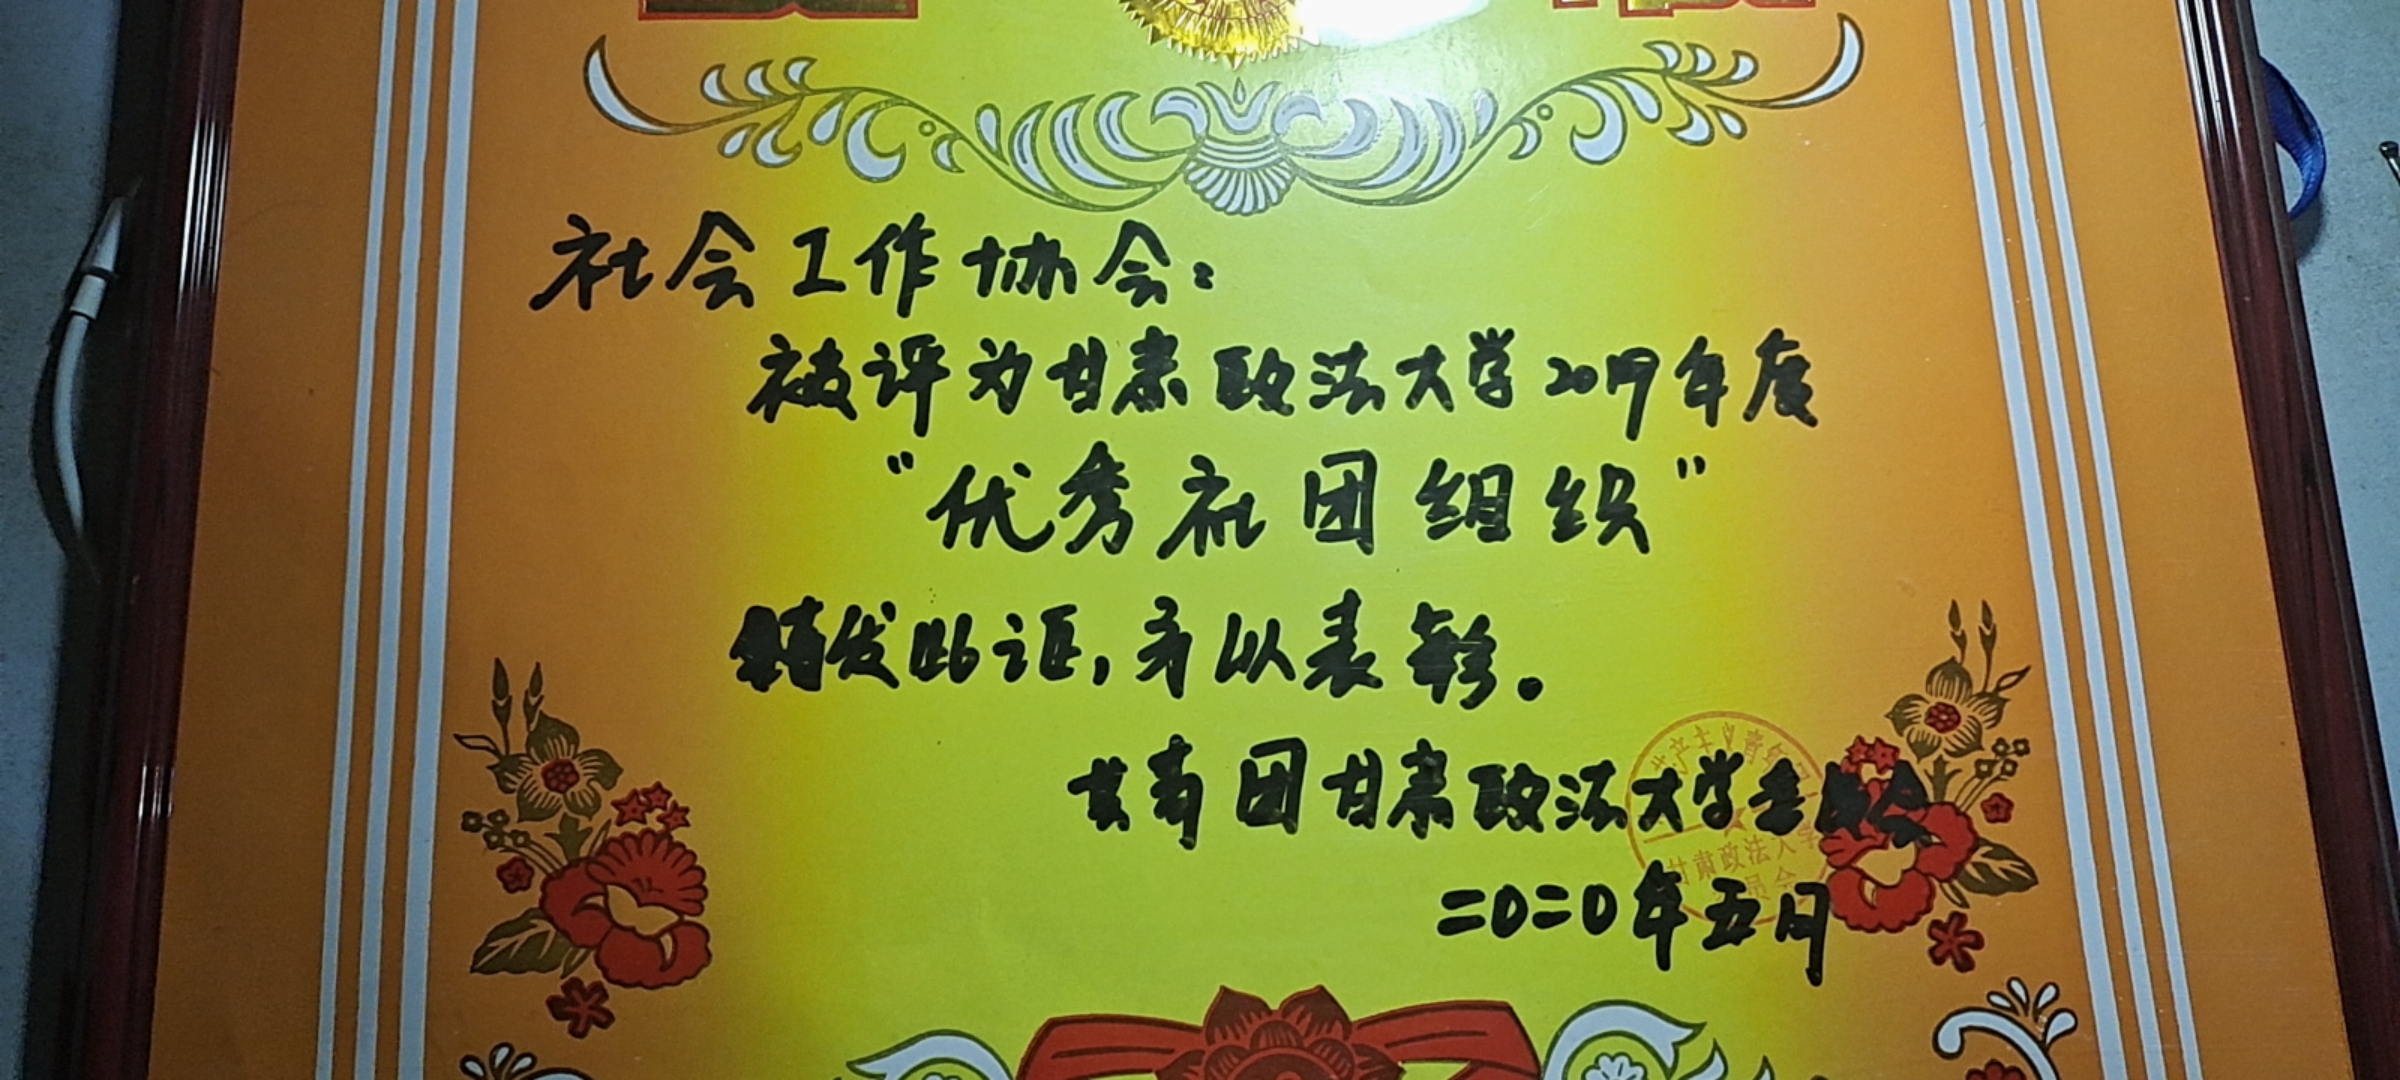 社会工作协会：
被评为甘肃政法大学2019年度
“优秀社团组织”
特发此证，予以表彰。
共青团甘肃政法大学委员会
二0二0年五月
共产主义青年团
甘肃政法大学
员会